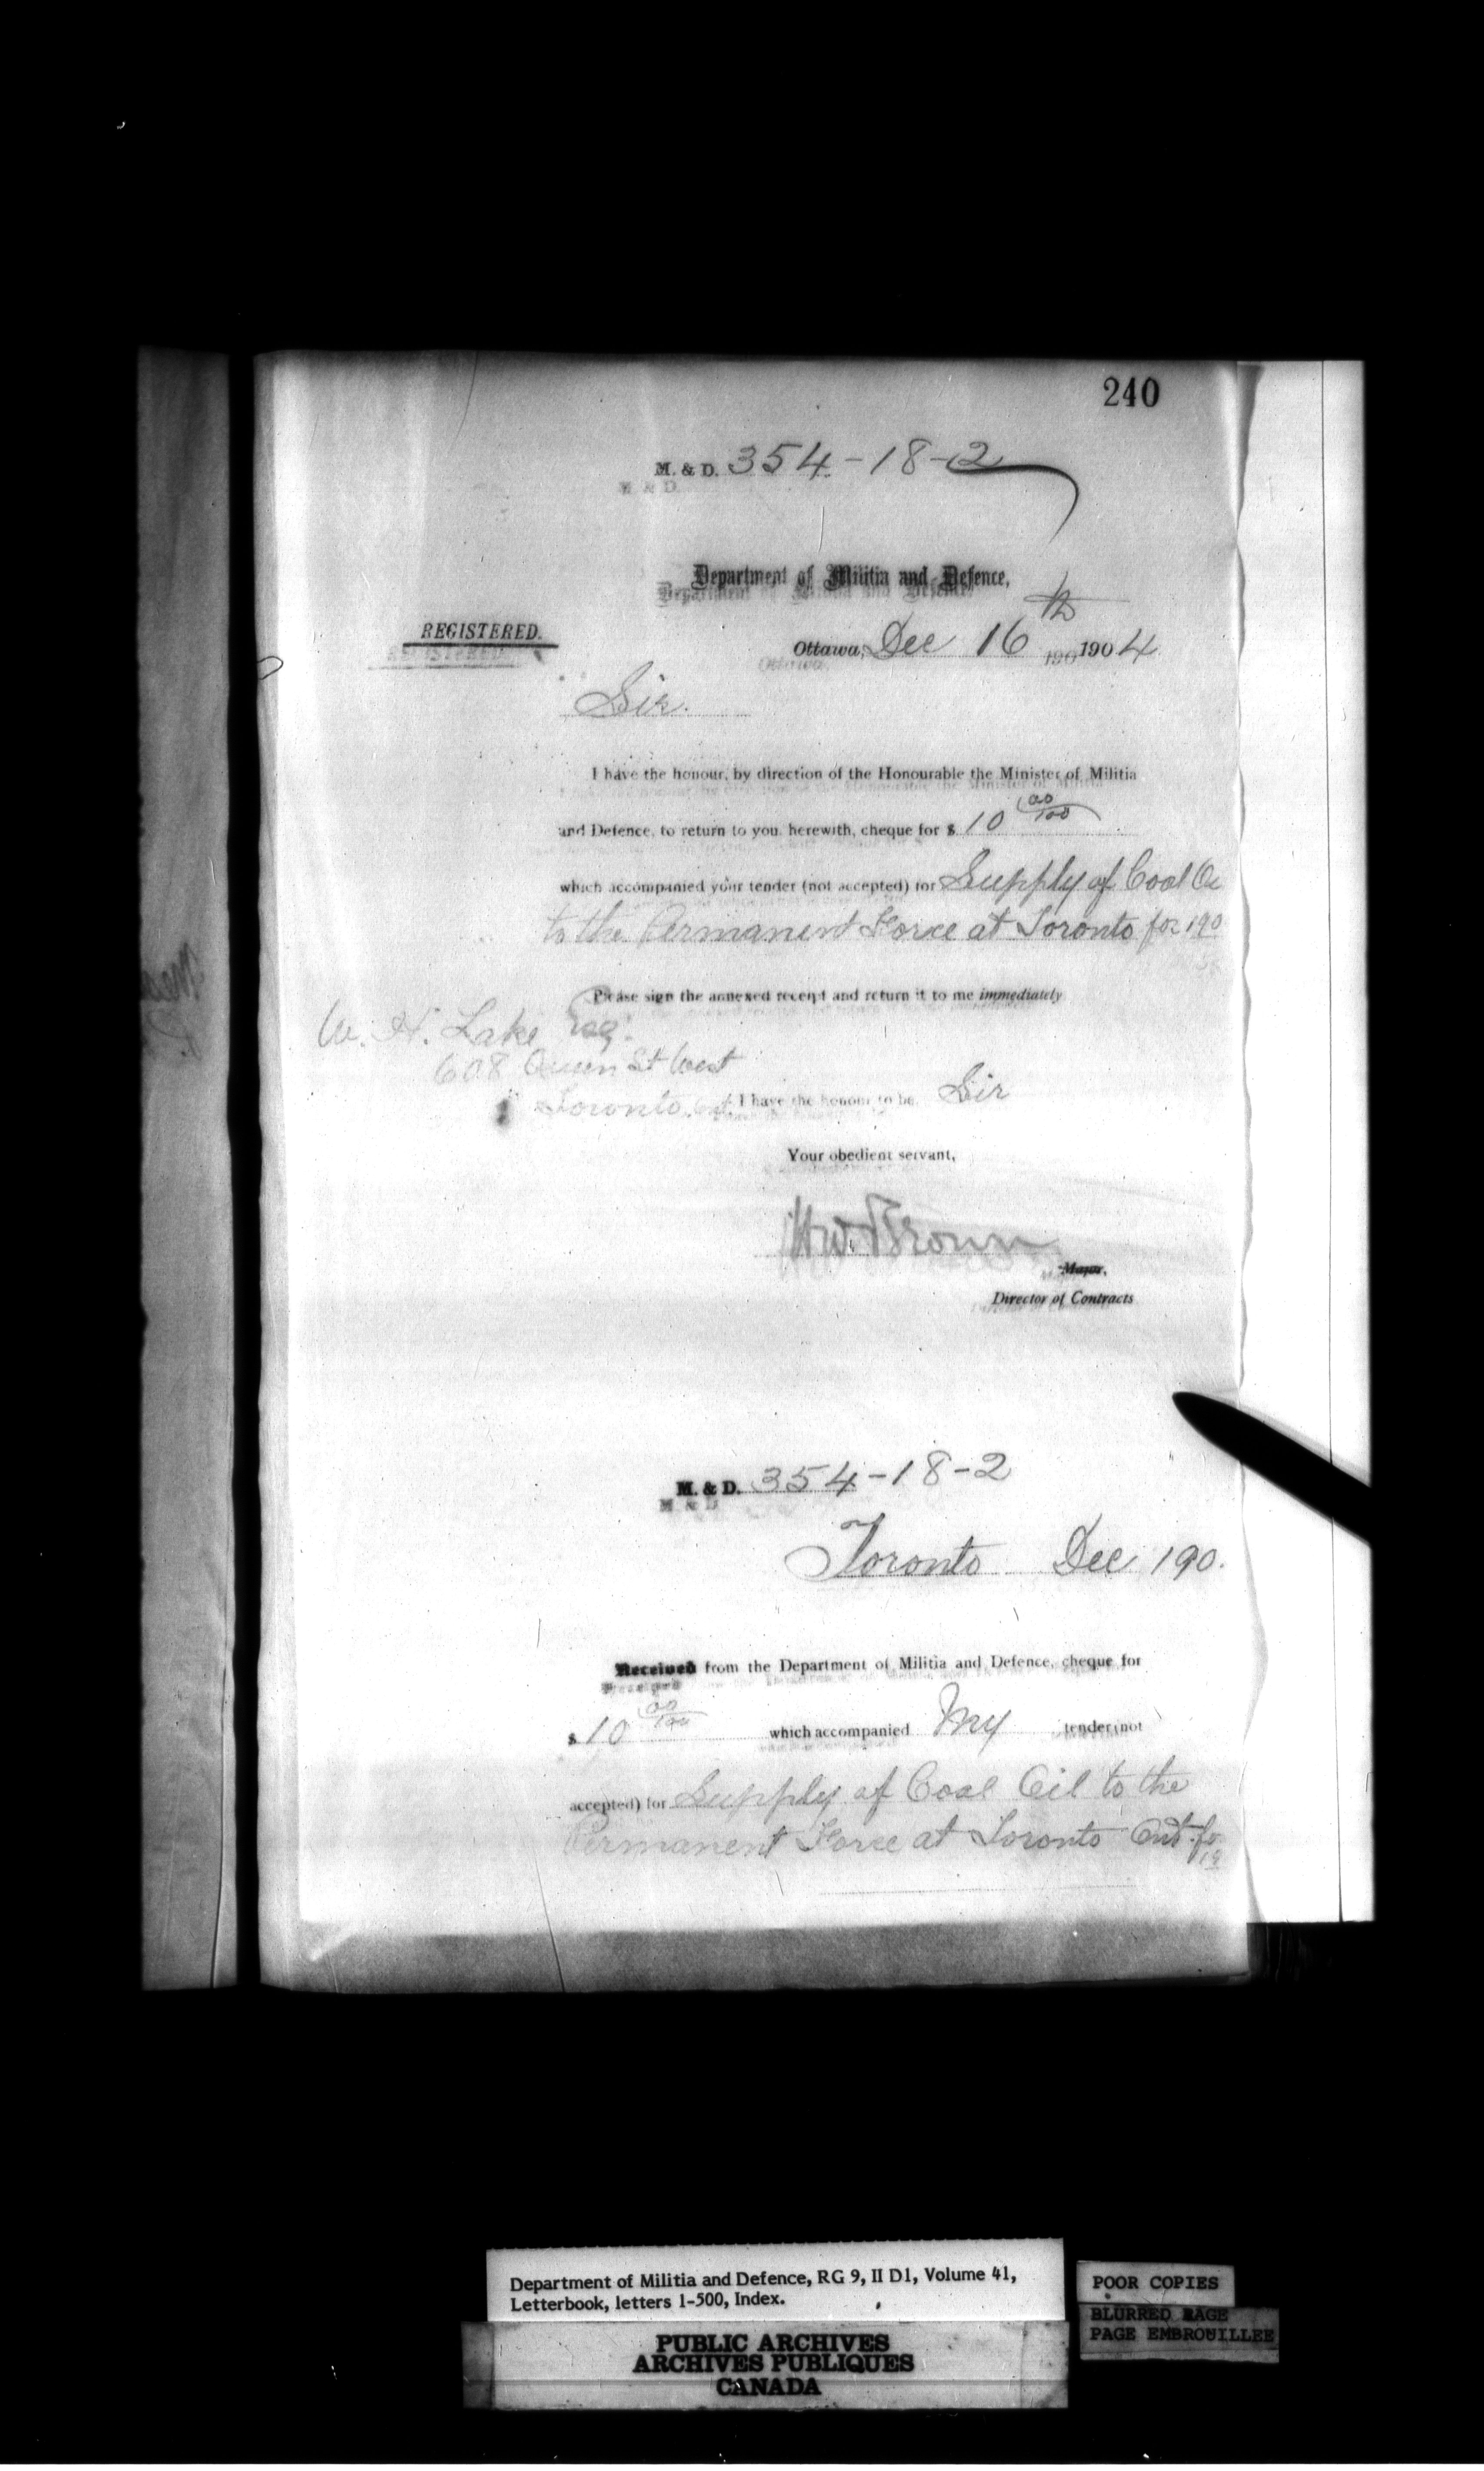 240
M. & D. 354-18-2
Department of Militia and Defence,
REGISTERED.
Ottawa, Dec 16th 1904
Sir.
I have the honour, by direction of the Honourable the Minister of Militia
and Defence, to return to you, herewith, cheque for $ 10 00/100
which accompanied your tender (not accepted) for Supply of Coal Oi
to the Permanent Force at Toronto for 190
Please sign the annexed receipt and return it to me immediately
W. H. Lake Esq.
608 Queen St West
Toronto. Ont. I have the honour to be, Sir
Your obedient servant,
HW. Brown
Major,
Director of Contracts
M. & D. 354-18-2
Toronto Dec 190.
Received from the Department of Militia and Defence, cheque for
$ 10 00/100 which accompanied My tender (not
accepted) for Supply of Coal Oil to the
Permanent Force at Toronto Ont fo
19
Department of Militia and Defence, RG 9, II D1, Volume 41,
Letterbook, letters 1-500, Index.
POOR COPIES
BLURRED PAGE
PAGE EMBROUILLEE
PUBLIC ARCHIVES
ARCHIVES PUBLIQUES
CANADA